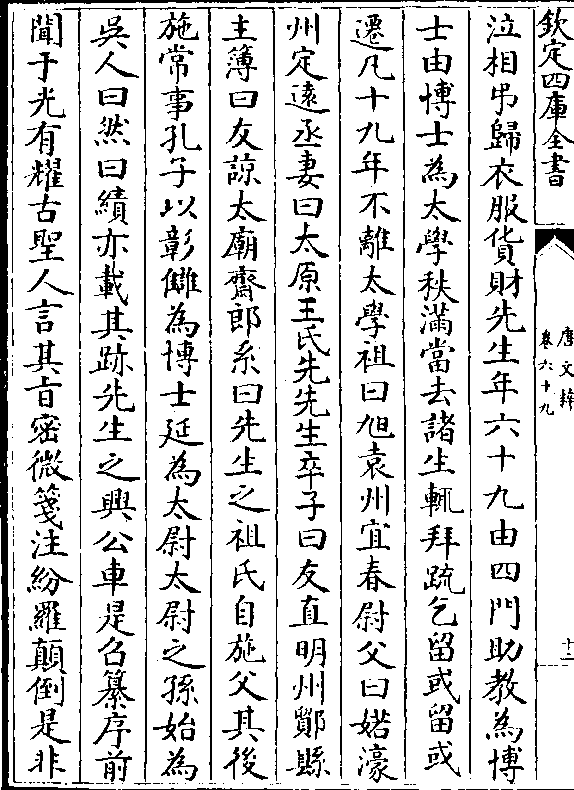 欽定四庫全書
唐文粹
卷六十九
十二
泣相弔歸衣服貨財先生年六十九由四門助教為博
士由博士為太學秩滿當去諸生輒拜䟽乞留或留或
遷凡十九年不離太學祖曰旭袁州宜春尉父曰婼濠
州定遠丞妻曰太原王氏先先生卒子曰友直明州鄮縣
主簿曰友諒太廟齋郎系曰先生之祖氏自施父其後
施常事孔子以彰讎為博士延為太尉太尉之孫始為
吳人曰然曰績亦載其跡先生之興公車是召纂序前
聞于光有耀古聖人言其㫖密微箋注紛羅顛倒是非